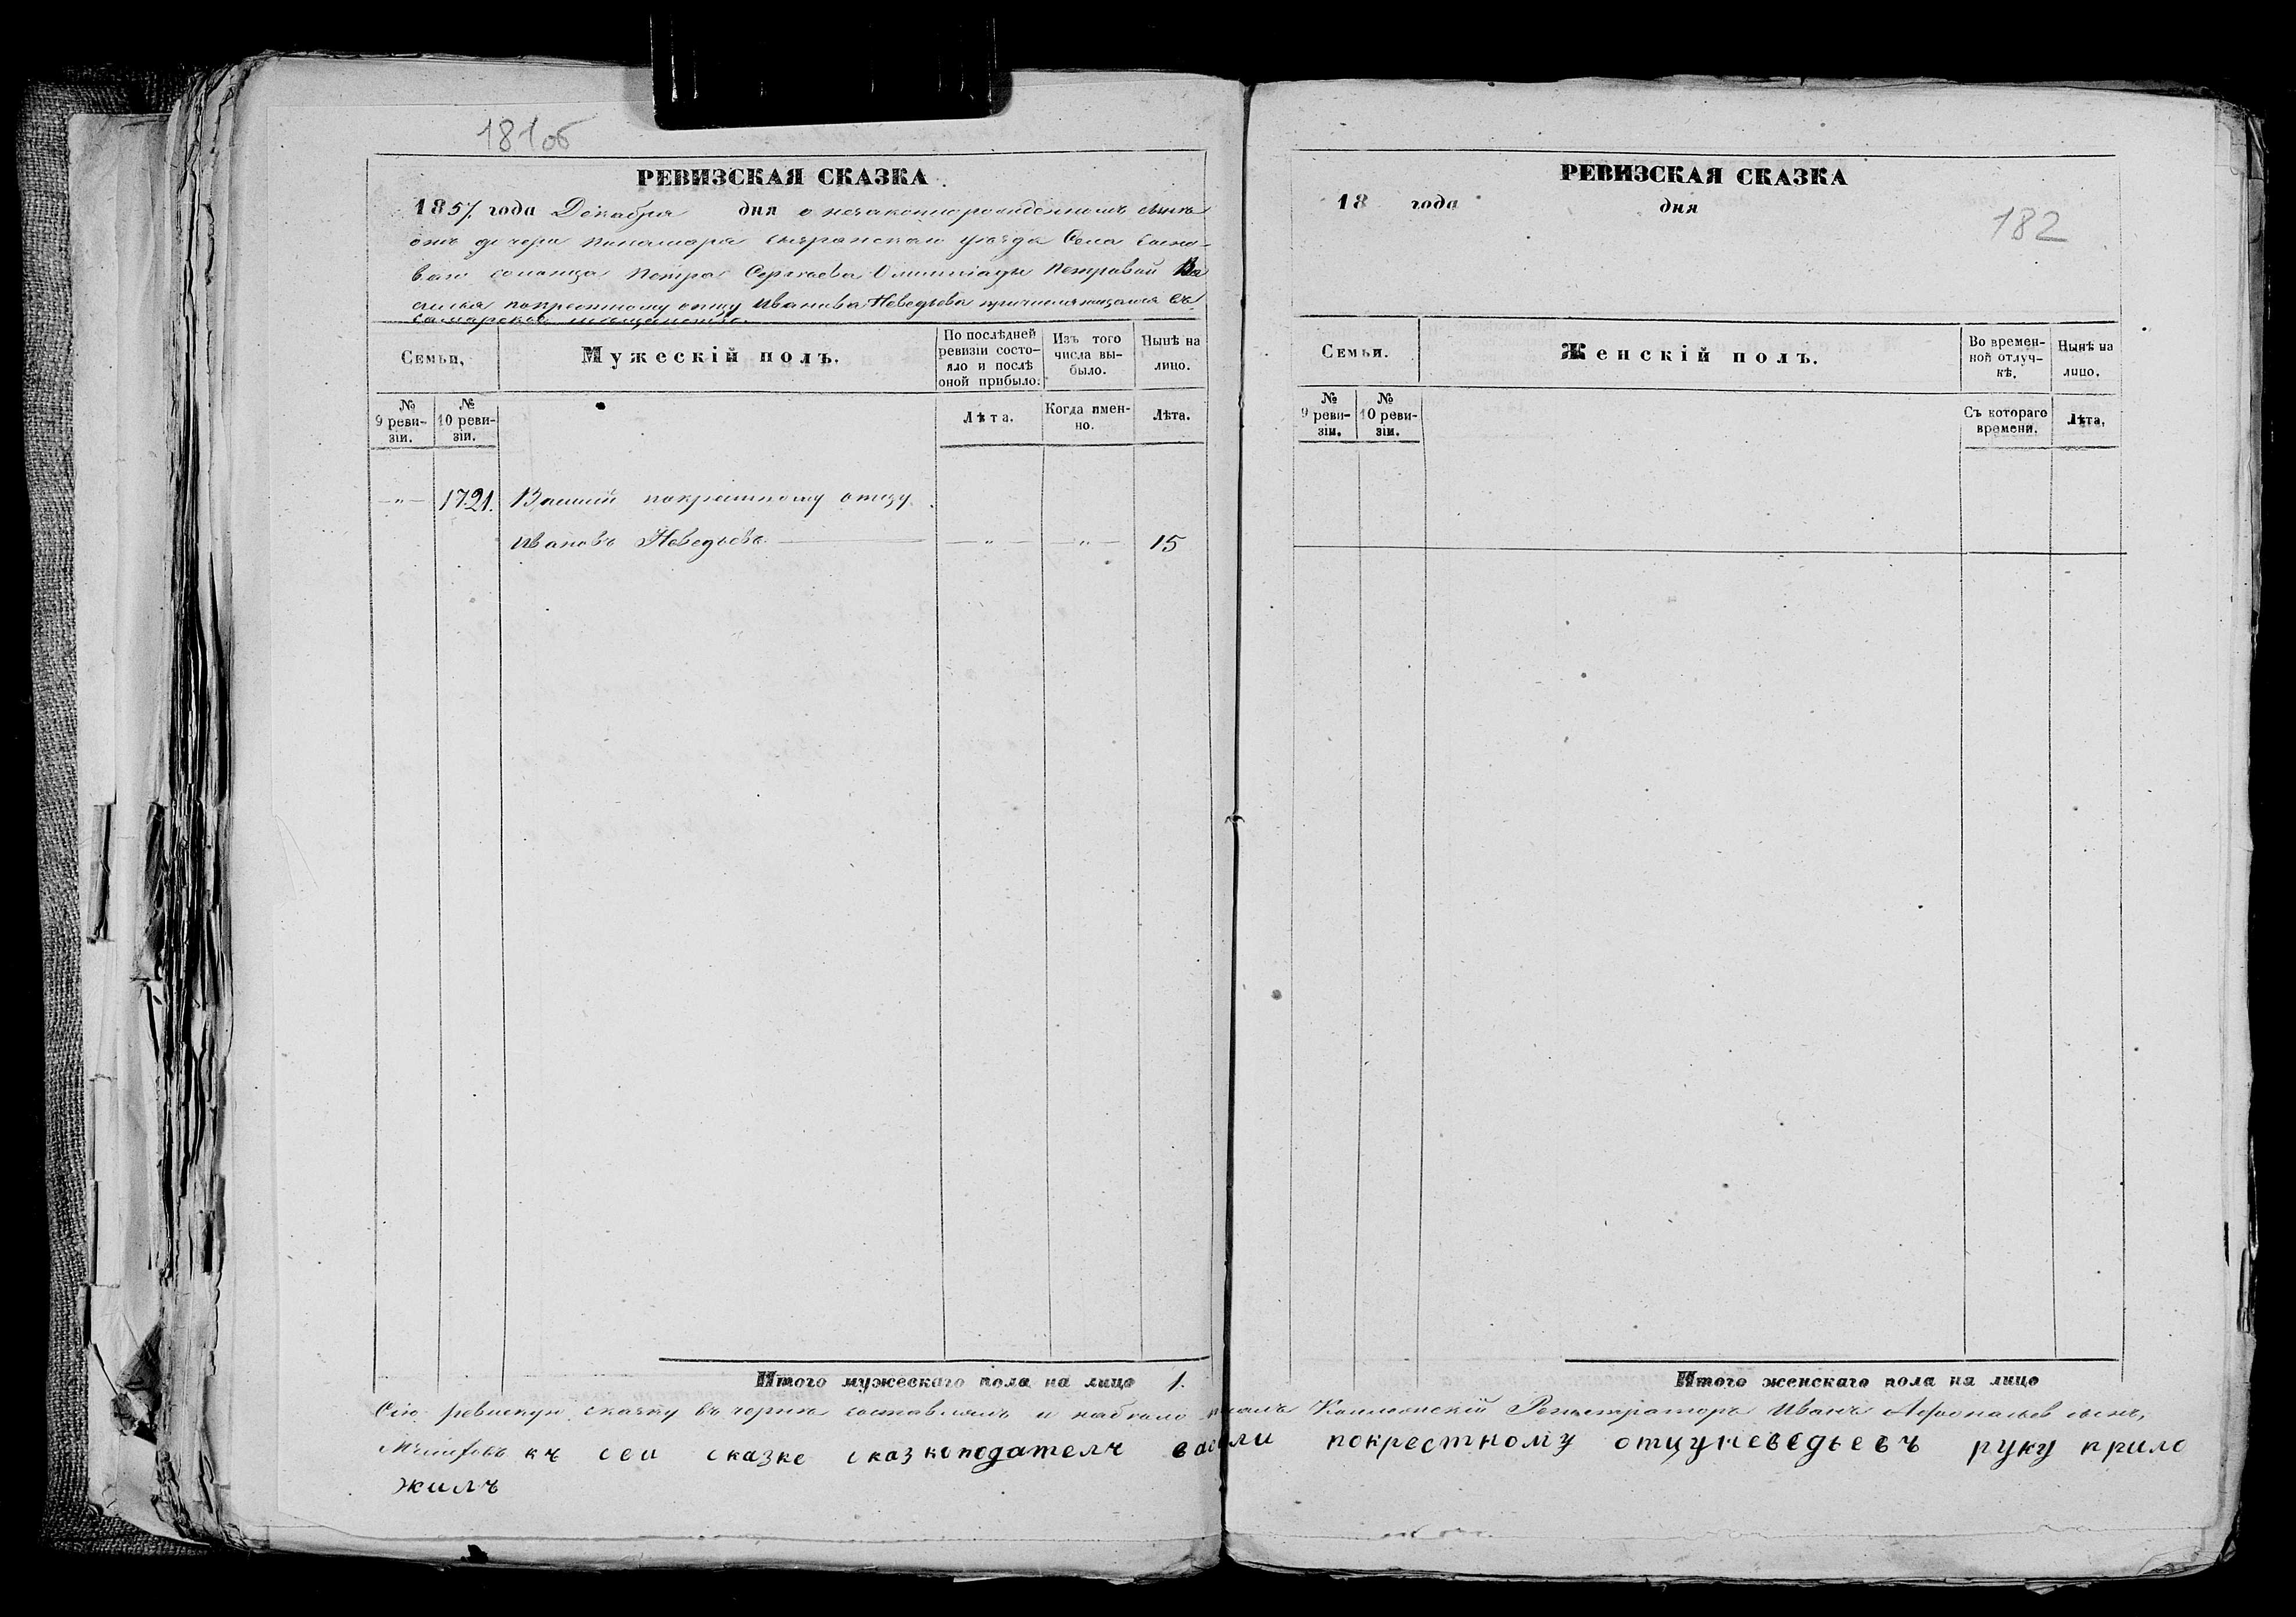 181об
РЕВИЗСКАЯ СКАЗКА
1857 года Декабря дня о незаконнорожденномъ сынѣ
отъ дочери пономаря Сызранскаго уѣзда Села
ваго Петра Сергѣева Олимпіады Петровой Ва
силья покрестному отцу Иванова Неведьева причисляющагося въ
самарское мещанство.
Семьи,
Мужескій полъ.
По послѣдней ревизіи состояло и послѣ оной прибыло.
Изъ того числа выбыло.
Нынѣ на лицо.
№ 9 ревизіи.
№ 10 ревизіи.
Лѣта.
Когда именно.
Лѣта.
—"— 1721. Василій покрестному отцу
Ивановъ Неведьевъ —"— —"— 15
Итого мужескаго пола на лицо 1.
РЕВИЗСКАЯ СКАЗКА
18 года дня
182
Семьи.
Женскій полъ.
Во временной отлучкѣ.
Нынѣ на лицо.
№ 9 ревизіи.
№ 10 ревизіи.
Съ котораго времени.
Лѣта.
Итого женскаго пола на лицо
Сію ревискую скаску въ чернѣ составлялъ и набѣло писалъ Коллежскій Регистраторъ Иванъ сынъ,
къ сеи сказке сказкоподателъ васили покрестному отцу неведьевъ руку прило
жилъ